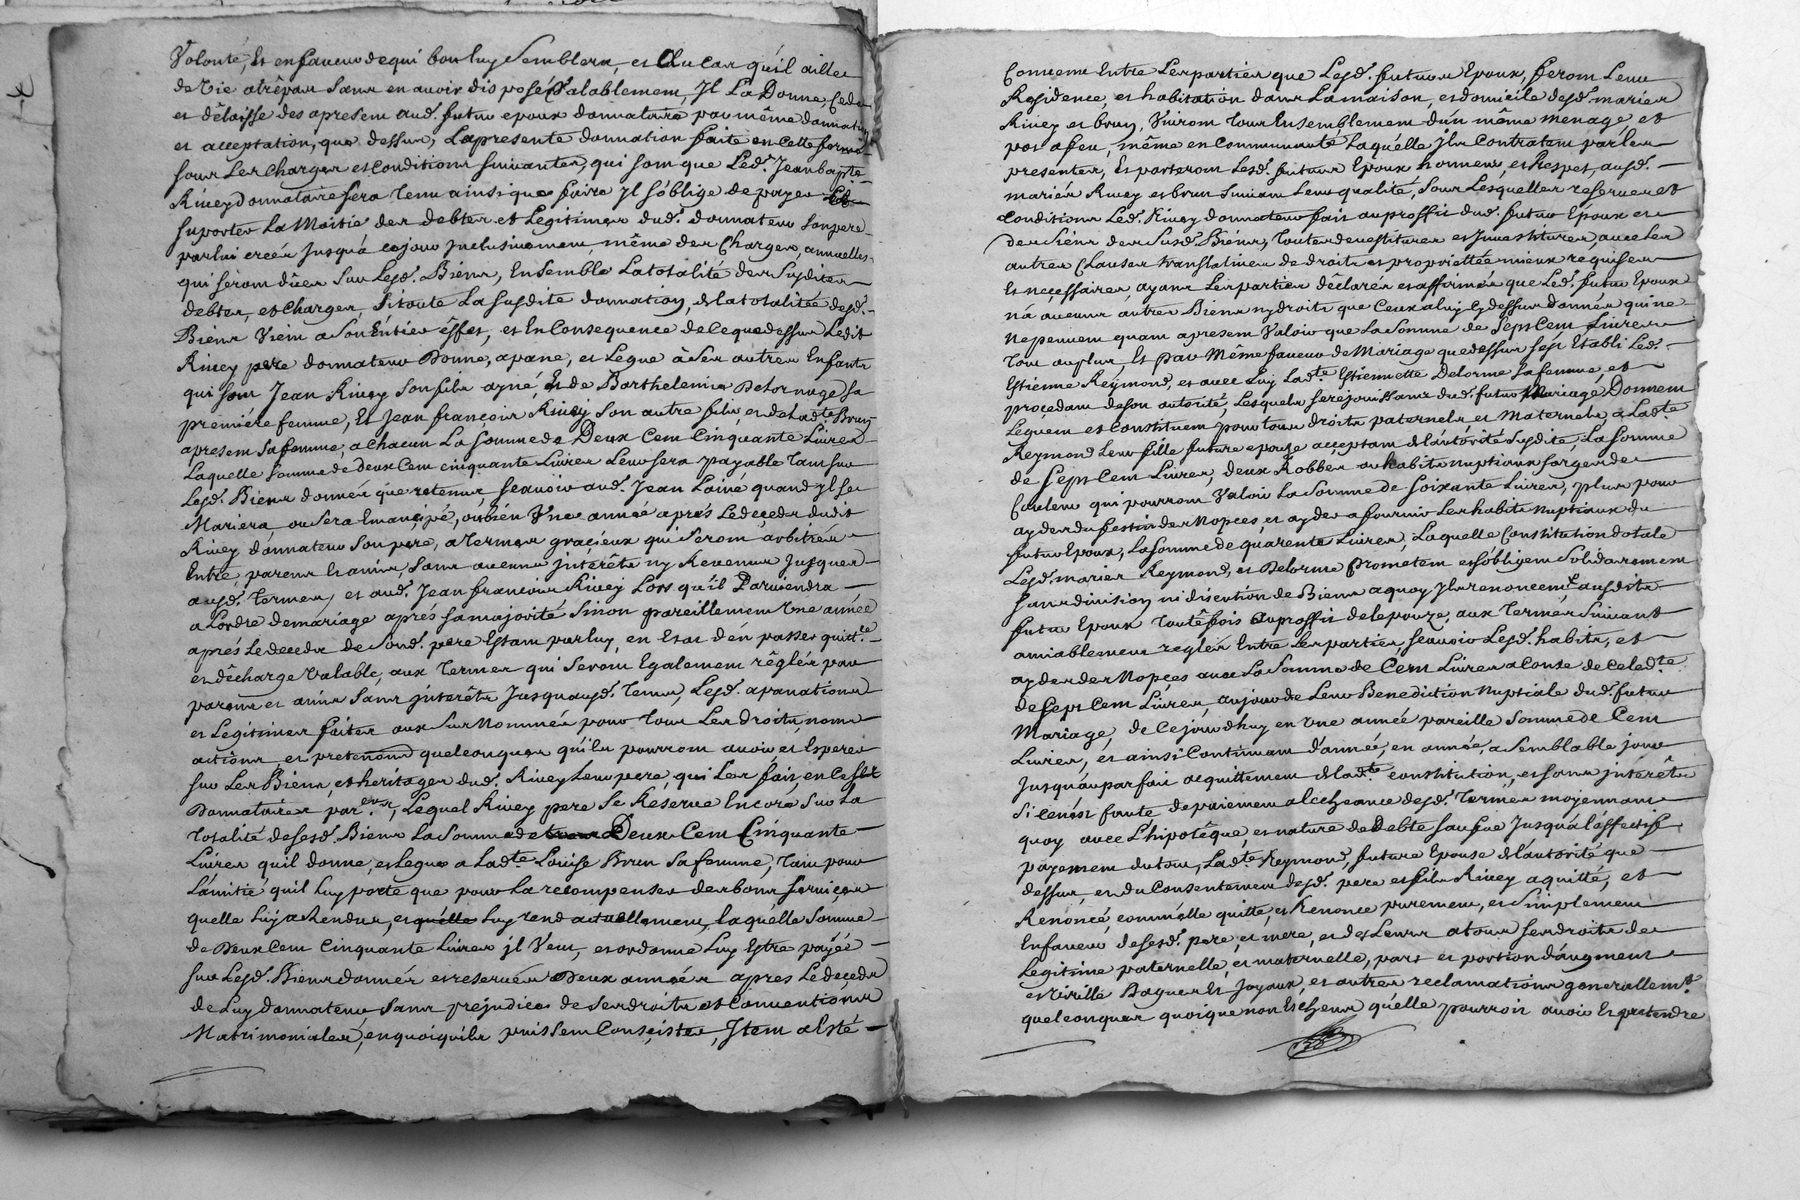 Volonté, Et en faveur de qui bon luy Semblera, et Au Cas qu'il aille
de vie atrépas Sans en avoir disposé P'alablement, Jl La Donne, Cede
et délaisse des apresent aud. futur epoux donnataire par même donnation
et acceptation, que dessus, Lapresente donnation faite en cette forme
sous Les charges et Conditions suivantes, qui sont que Led. Jean bapte.
Rivey donnataire sera tenu ainsi que faire Jl s'oblige de payer et
suporter La Moitié des debtes et Legitimes dud. donnateur Son pere
par lui créés Jusqu'a cejour Jnclusivement même des Charges annuelles
qui seront dües Sur Lesd. Biens, Ensemble La totalité des Susdites
debtes, et Charges, Si toute La susdite donnation, et la totalitée desd.
Biens Vient a Son Entier éffet, et En Consequence de Ce que dessus Ledit
Rivey pere donnateur Donne, apane, et Legue à Ses autres Enfants
qui sont Jean Rivey Son fils ayné, Et de Barthelemie Delornage sa
premiére femme, Et Jean françois Rivey Son autre fils, et de Ladte Brun
apresent Sa femme, a chacun La somme de Deux Cent Cinquante Livres
Laquelle somme de deux Cent cinquante Livres Leur sera payable Tant sur
Lesd. Biens donnés que retenus, scavoir aud. Jean Lainé quand Jl se
Mariera, ou Sera Emancipé, oubien Vne année aprés Le deçeds dudit
Rivey donnateur Son pere, a termes graçieux qui seront arbitrés
Entre parens et amis, Sans aucuns jnterêts ny Revenus Jusques
ausd. termes, et aud. Jean francois Rivey Lors qu'il Parviendra
a Lordre de mariage aprés sa majorité Sinon pareillement Vne année
aprés Le deceds de Sond. pere Estant par luy en Etat d'en passer quitt.ce
et décharge Valable, aux termes qui Seront Egalement réglés par
parens et amis Sans jnterêts Jusqu'ausd. termes, Lesd. apanations
et Legitimes faites aux Sus Nommés pour tous Les droits, noms
actions, et pretentions quelconques qu'ils pourront avoir et Esperer
sur Les Biens, et heritages dud. Rivey Leur pere, qui Les fais, en Ce sbt
Donnataires par.ers, Lequel Rivey pere Se Réserve Encore Sur La
totalité de Sesd. Biens La Somme de Deux Cent Cinquante
Livres qu'il donne, et Legue a Ladte. Louise Brun Sa femme, tant pour
Lamitié qu'il Luy porte que pour La recompenser des bons services
quelle Luy a Rendus, et quélle Luy rend actuellement, laquelle Somme
de Deux Cent Cinquante Livres jl Veut, et ordonne Luy Estre payée
sur Lesd. Biens donnés et reservés Deux années apres Le deçeds
de Luy donnateur Sans prejudices de Ses droits et Conventions
Matrimoniales, en quoi qu'ils puissent Consçister, Jtem a Esté
Convenu Entre Les parties que Lesd. futurs Epoux, feront Leur
Résidence, et habitation dans La maison, et domicile desd. mariés
Rivey et brun, Vivront tous Ensemblement d'un même menage et
pot afeu, même en Communauté Laquélle Jls Contratent par les
presentes, Et porteront Lesd. futurs Epoux honneur, et Respet, ausd.
mariés Rivey et brun Suivant Leur qualité, Sous Lesquelles reserves et
Conditions Led. Rivey donnateur fait au proffit dud. futur Epoux et
des Siens des Susd. Biens, toutes devestitures et Jnvestitures, avec Les
autres Clauses translatives de droits et propriettée mieux requises
Et neçessaires, ayant Les parties déclarés et affirmés que Led. futur Epoux
n'a aucuns autres Biens ny droits que Ceux a luy cydessus donnés qui ne
peuvent quant apresent Valoir que La Somme de Sept Cent Livres
tout au plus, Et Par Même faveur de Mariage que dessus s'est Etabli Led.
Etienne Reymond, et avec Luy Ladte. Etiennette Delorme sa femme, et
procedant de son autorité, Lesquels se réjouissans dud. futur Mariage Donnent
Leguent et Constituent pour tous droits paternels, et Maternels a Ladte
Reymond Leur fille future epouse acceptant de l'autorité Susdite, La somme
de Sept Cent Livres, deux Robbes ou habits nuptiaux sarge de
Couleur qui pourront Valoir La Somme de Soixante Livres, plus pour
ayder du festin des Nopces, et ayder a fournir Les habits Nuptiaux du
futur Epoux, La somme de quarente Livres, Laquelle Constitution dotale
Lesd. mariés Reymond, et Delorme Promettent et s'obligent Solidairement
sans division ni discution de Biens a quoy Jls renoncent ausdits
futur Epoux toutesfois au proffit de lepouze, aux termes Suivants
amiablement reglés Entre Les parties, scavoir Lesd. habits, et
ayder des Nopçes avec La Somme de Cent Livres a Conte de Celadte.
de Sept Cent Livres au jour de Leur Benediction Nuptiale dud. futur
Mariage, de Ce jourdhuy en Vne année pareille Somme de Cent
Livres, et ainsi Continuant d'année, en année, a Semblable jour
Jusqu'au parfait acquittement de Ladte. constitution, et sans jntérêts
Si Cenést faute de paiement a L'echeance desd. termes moyennant
quoy avec L'hipotêque, et nature de Debte sauf que Jusqu'a l'éffectif
payement du tout, Ladte. Reymond, future Epouse de l'autorité que
dessus, et du Consentement desd. pere et fils Rivey a quitté, et
Renoncé, comm'elle quitte, et Renonce purement, et Simplement
En faveur de Sesd. pere, et mere, et des Leurs a tous Ses droits de
Legitime paternelle, et maternelle, part et portion d'augment
et Virille Bagues Et Joyaux, et autres reclamations generallemt.
quelconques quoique non Escheus qu'elle pourroit avoir Et pretendre